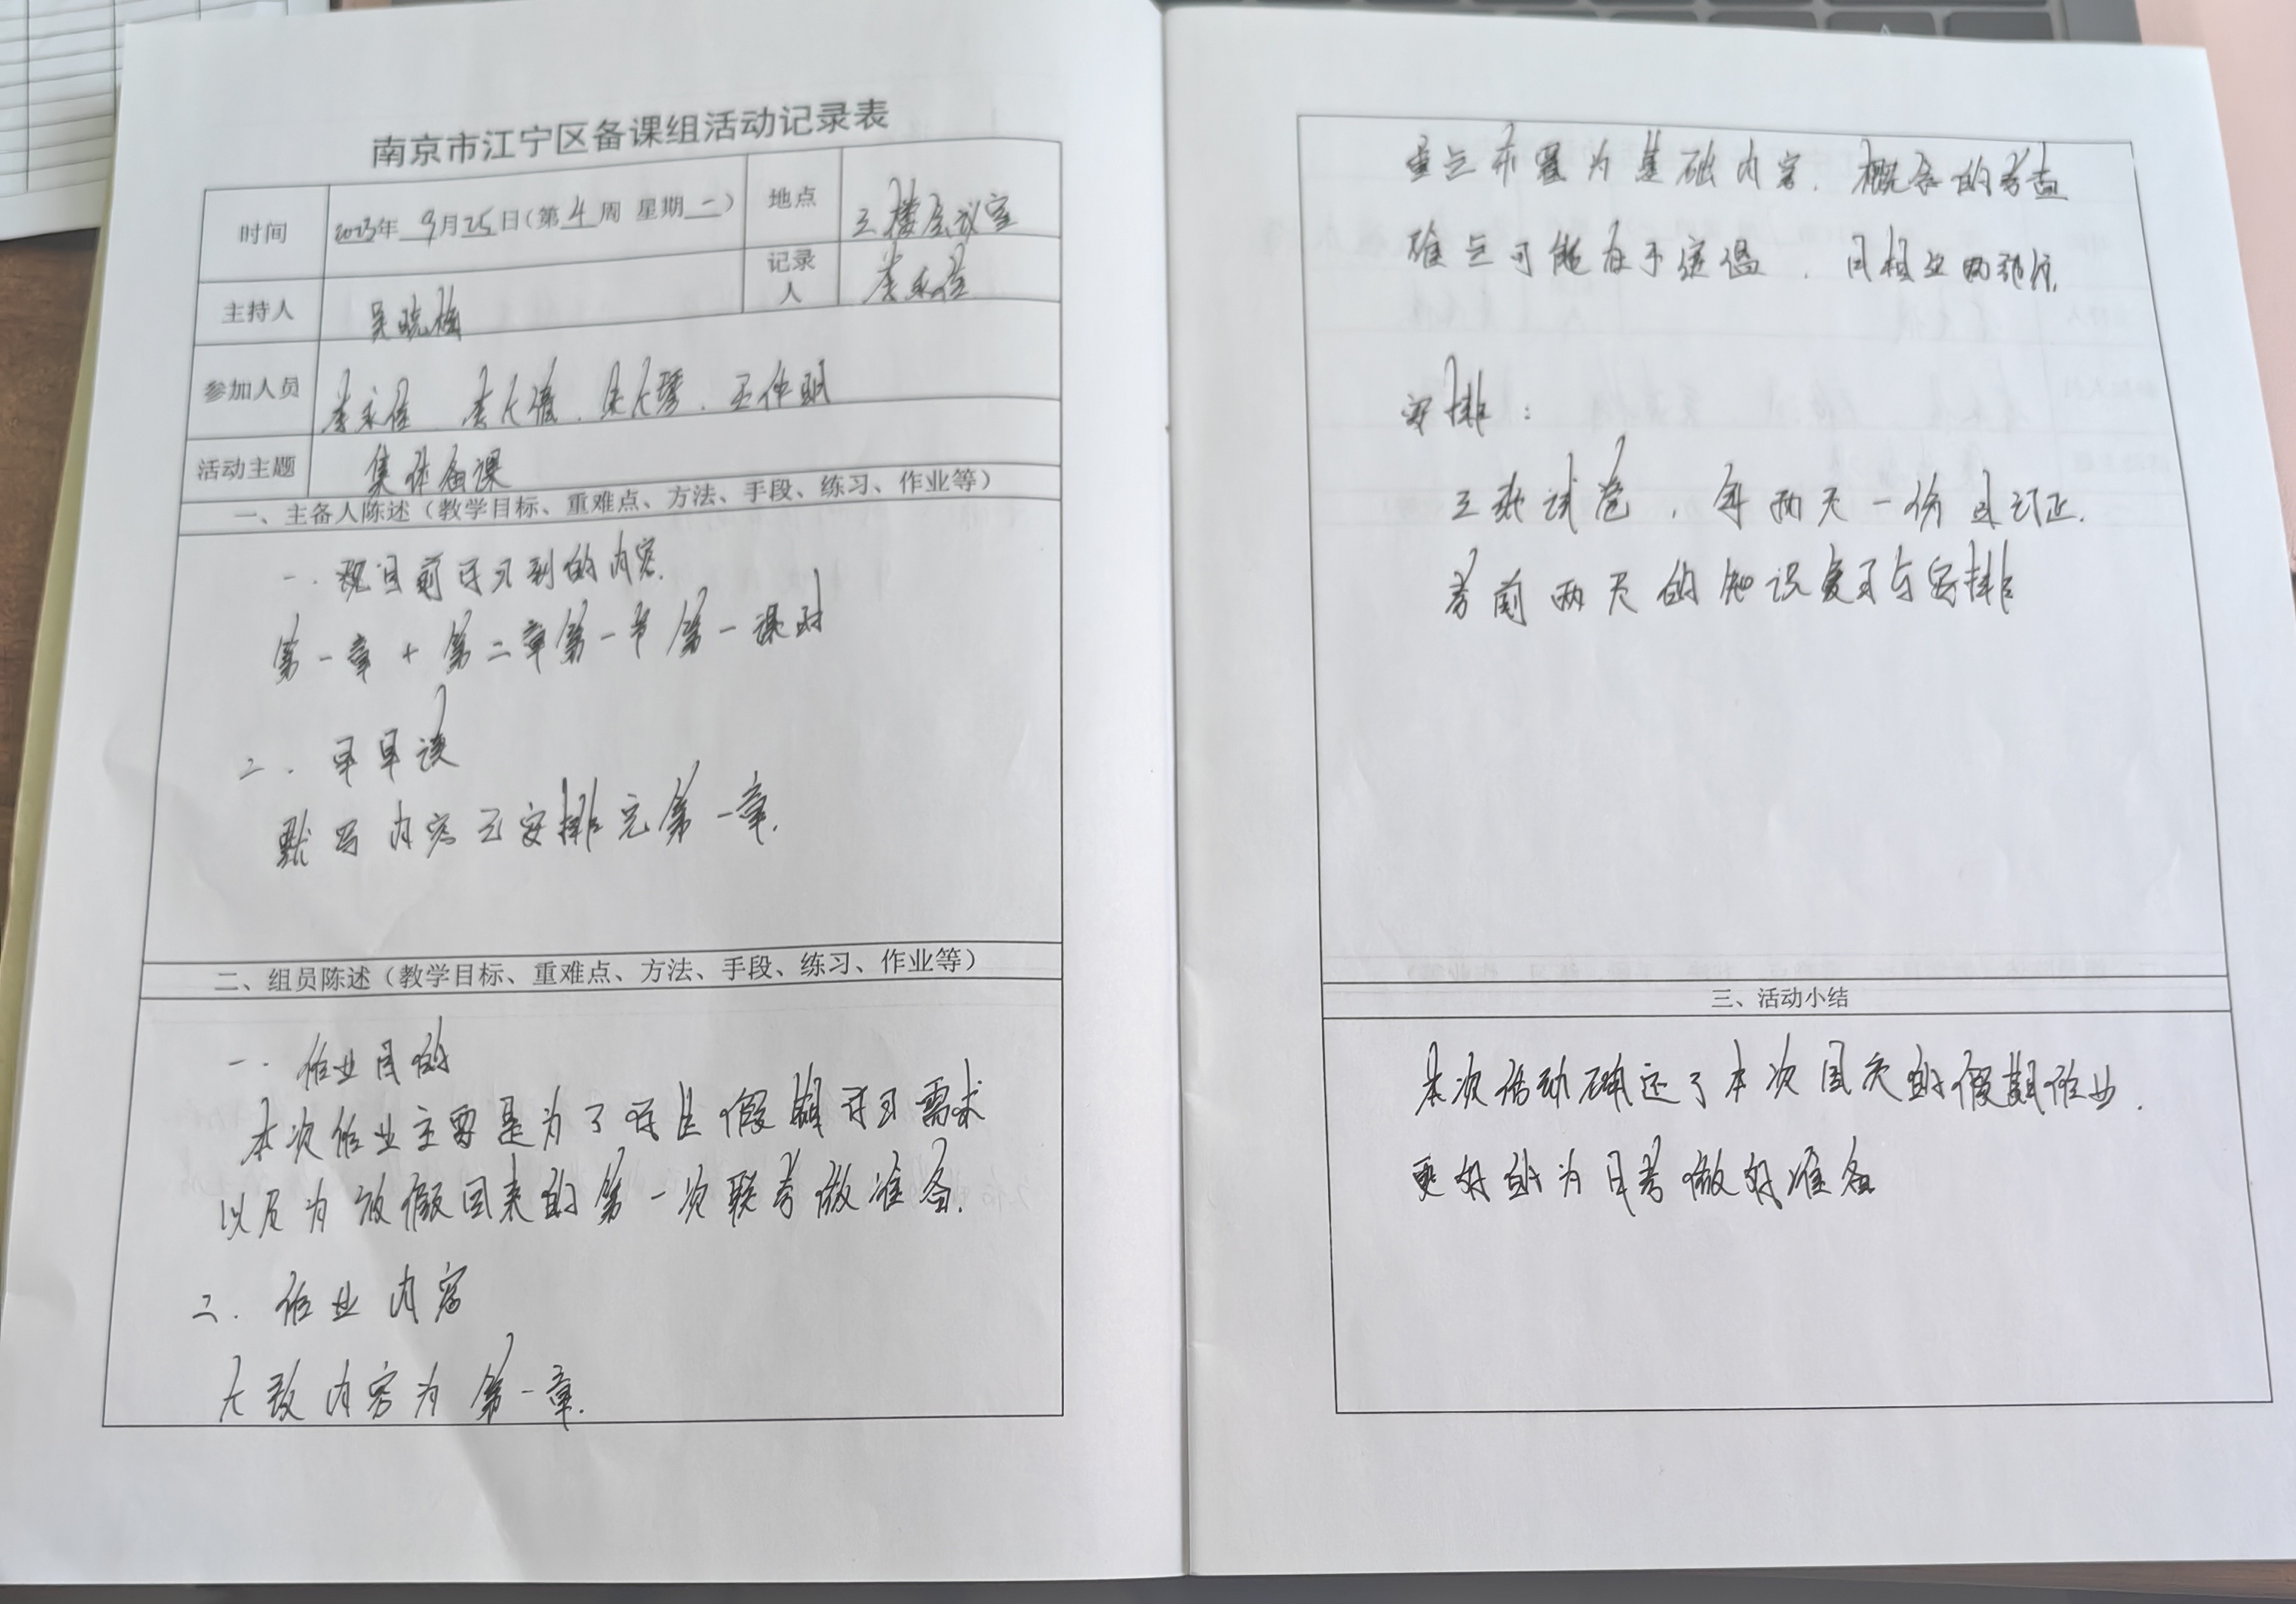 南京市江宁区备课组活动记录表
时间 2023年 9月25日(第4周 星期二) 地点 三楼会议室
主持人 吴晓梅 记录人 李永佳
参加人员 李永佳、李大倩、王仲明
活动主题 集体备课
一、主备人陈述(教学目标、重难点、方法、手段、练习、作业等)
一.现目前学习到的内容.
第一章+第二章第一节第一课时
二.早早读
默写内容已安排完第一章.
二、组员陈述(教学目标、重难点、方法、手段、练习、作业等)
一.作业目的
本次作业主要是为了满足假期学习需求
以及为放假回来的第一次联考做准备.
二.作业内容
大致内容为第一章.
重点布置为基础内容.概念的考查
难点可能在于
安排:
三张试卷,每两天一份且订正.
考前两天的知识复习与安排
三、活动小结
本次活动确定了本次国庆的假期作业.
更好的为月考做好准备